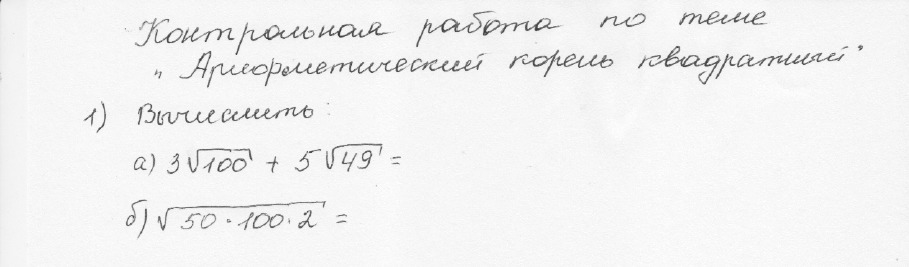 Контрольная работа по теме
„Арифметический корень квадратный"
1) Вычислить:
а) 3√100 + 5√49 =
б) √50·100·2 =